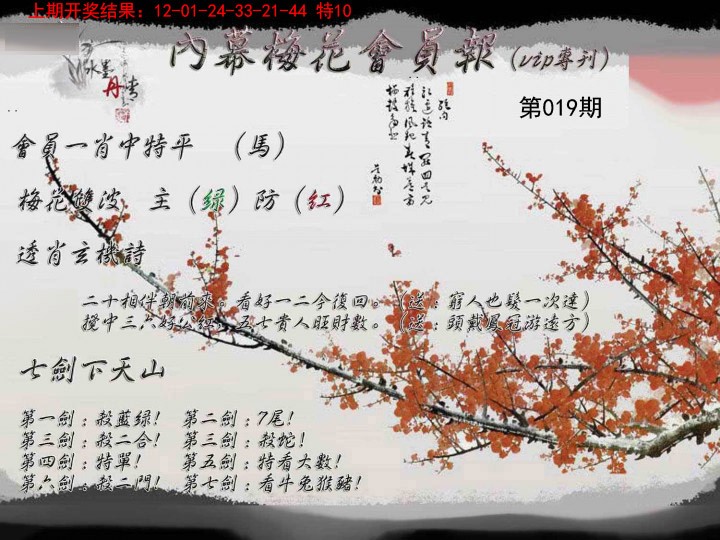 上期开奖结果：12-01-24-33-21-44 特10
內幕梅花會員報（vip專刊）
第019期
會員一肖中特平 （馬）
梅花雙波 主（绿）防（红）
透肖玄機詩
二十相伴朝前來。看好一二今復回。（送：窮人也發一次達）
攪中三六好公經。五七貴人旺財數。（送：頭戴鳳冠游遠方）
七劍下天山
第一劍：殺藍绿！ 第二劍：7尾！
第三劍：殺二合！ 第三劍：殺蛇！
第四劍：特單！ 第五劍：特看大數！
第六劍：殺二門！ 第七劍：看牛兔猴豬！